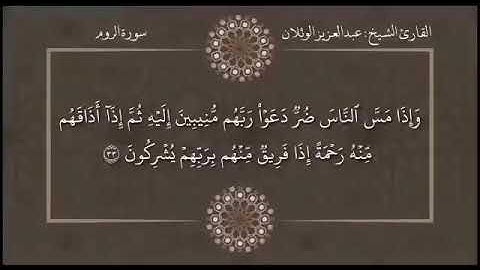 القارئ الشيخ: عبدالعزيز الوئلان
سورة الروم
وَإِذَا مَسَّ ٱلنَّاسَ ضُرٌّ دَعَوْا۟ رَبَّهُم مُّنِيبِينَ إِلَيْهِ ثُمَّ إِذَآ أَذَاقَهُم
مِّنْهُ رَحْمَةً إِذَا فَرِيقٌ مِّنْهُم بِرَبِّهِمْ يُشْرِكُونَ ٣٣